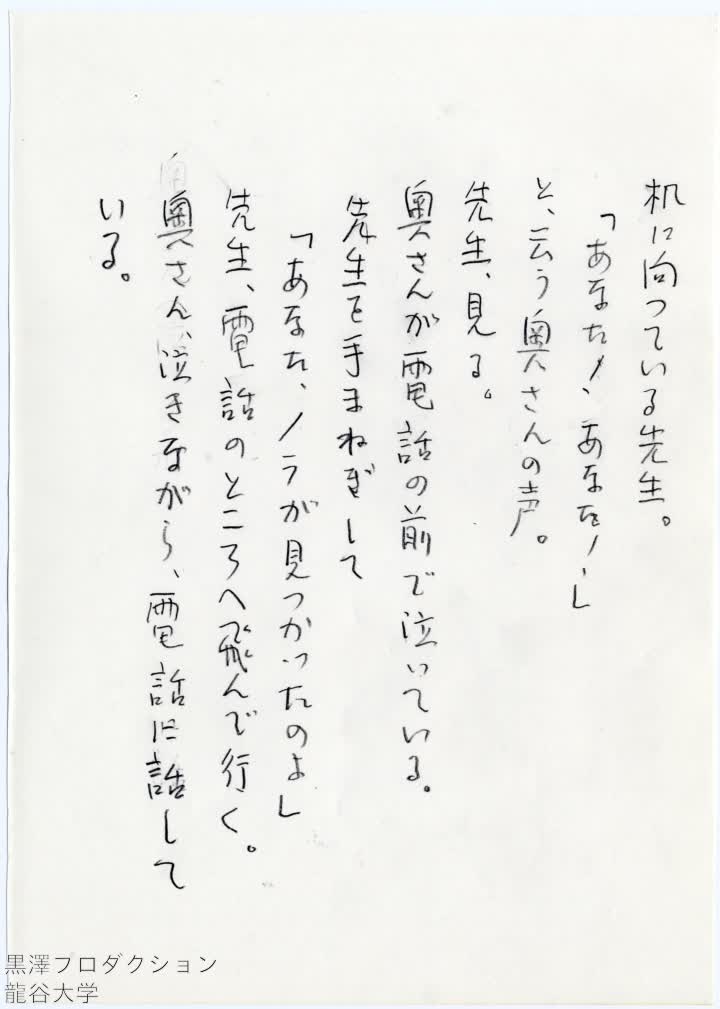 机に向つている先生。
「あなた！、あなた！」
と、云う奥さんの声。
先生、見る。
奥さんが電話の前で泣いている。
先生を手まねぎして
「あなた、ノラが見つかったのよ」
先生、電話のところへ飛んで行く。
奥さん、泣きながら、電話に話して
いる。
黒澤プロダクション
龍谷大学